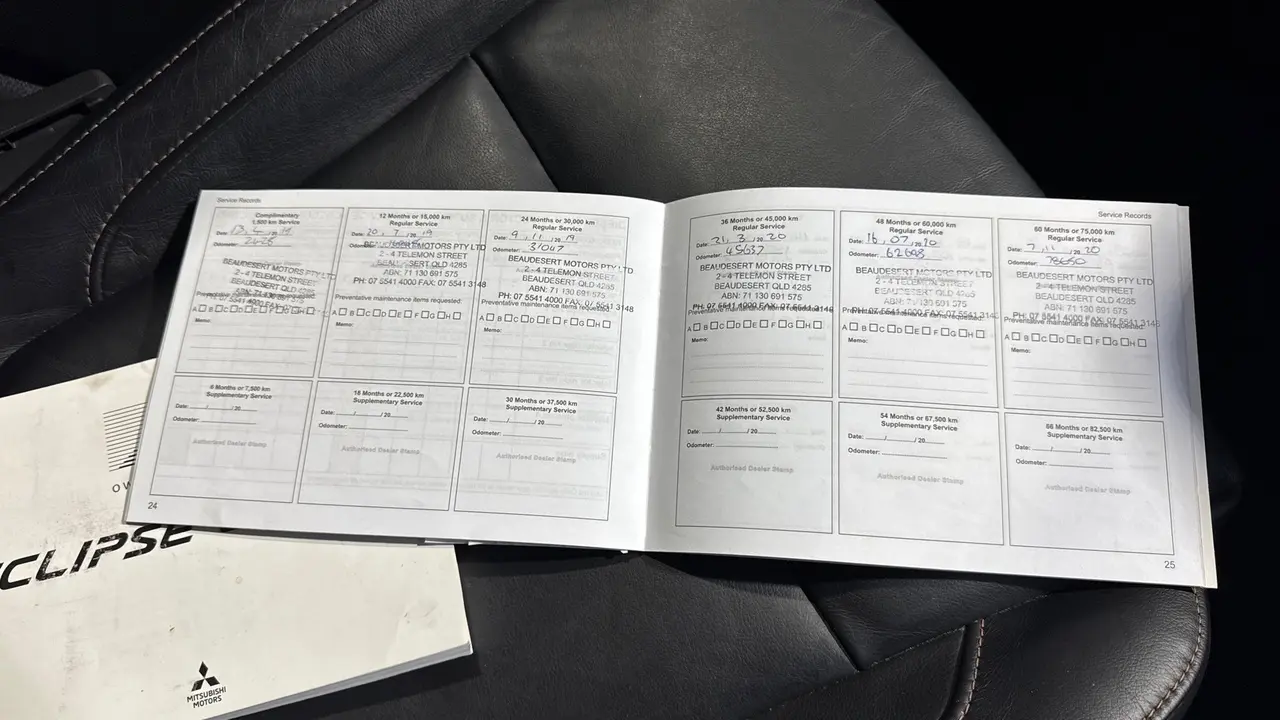 Service Records
Complimentary
1,500 km Service
Date: 13, 4, 20 19
Odometer:
BEAUDESERT MOTORS PTY LTD
2 - 4 TELEMON STREET
BEAUDESERT QLD
Preventative maintenance items requested:
A B C D E F G H
Memo:
12 Months or 15,000 km
Regular Service
Date: 20, 7, 20 19
Odometer:
BEAUDESERT MOTORS PTY LTD
2 - 4 TELEMON STREET
BEAUDESERT QLD 4285
ABN: 71 130 691 575
PH: 07 5541 4000 FAX: 07 5541 3148
Preventative maintenance items requested:
A B C D E F G H
Memo:
24 Months or 30,000 km
Regular Service
Date: 9, 11, 20 19
Odometer: 31047
BEAUDESERT MOTORS PTY LTD
2 - 4 TELEMON STREET
BEAUDESERT QLD 4285
ABN: 71 130 691 575
PH: 07 5541 4000 FAX: 07 5541 3148
Preventative maintenance items requested:
A B C D E F G H
Memo:
6 Months or 7,500 km
Supplementary Service
Date: / / 20
Odometer:
Authorised Dealer Stamp
18 Months or 22,500 km
Supplementary Service
Date: / / 20
Odometer:
Authorised Dealer Stamp
30 Months or 37,500 km
Supplementary Service
Date: / / 20
Odometer:
Authorised Dealer Stamp
24
Service Records
36 Months or 45,000 km
Regular Service
Date: 21, 3, 20 20
Odometer: 45637
BEAUDESERT MOTORS PTY LTD
2 - 4 TELEMON STREET
BEAUDESERT QLD 4285
ABN: 71 130 691 575
PH: 07 5541 4000 FAX: 07 5541 3148
Preventative maintenance items requested:
A B C D E F G H
Memo:
48 Months or 60,000 km
Regular Service
Date: 16, 07, 20 20
Odometer:
BEAUDESERT MOTORS PTY LTD
2 - 4 TELEMON STREET
BEAUDESERT QLD 4285
ABN: 71 130 691 575
PH: 07 5541 4000 FAX: 07 5541 3148
Preventative maintenance items requested:
A B C D E F G H
Memo:
60 Months or 75,000 km
Regular Service
Date: 7, 11, 20 20
Odometer:
BEAUDESERT MOTORS PTY LTD
2 - 4 TELEMON STREET
BEAUDESERT QLD 4285
ABN: 71 130 691 575
PH: 07 5541 4000 FAX: 07 5541 3148
Preventative maintenance items requested:
A B C D E F G H
Memo:
42 Months or 52,500 km
Supplementary Service
Date: / / 20
Odometer:
Authorised Dealer Stamp
54 Months or 67,500 km
Supplementary Service
Date: / / 20
Odometer:
Authorised Dealer Stamp
66 Months or 82,500 km
Supplementary Service
Date: / / 20
Odometer:
Authorised Dealer Stamp
25
OW
CLIPSE
MITSUBISHI
MOTORS